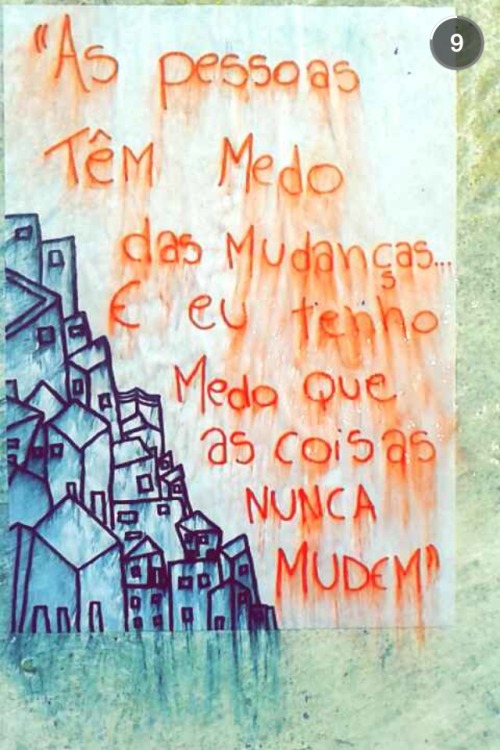 9
"As pessoas
TÊM Medo
das Mudanças...
E eu tenho
Medo Que
as coisas
NUNCA
MUDEM"